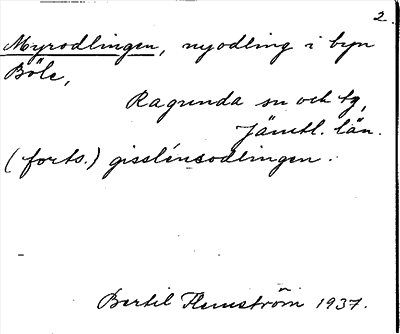 2.
Myrodlingen, nyodling i byn
Böle,
Ragunda sn och tg,
Jämtl. län.
(forts.) gisslénsodlingen.
Bertil Flemström 1937.